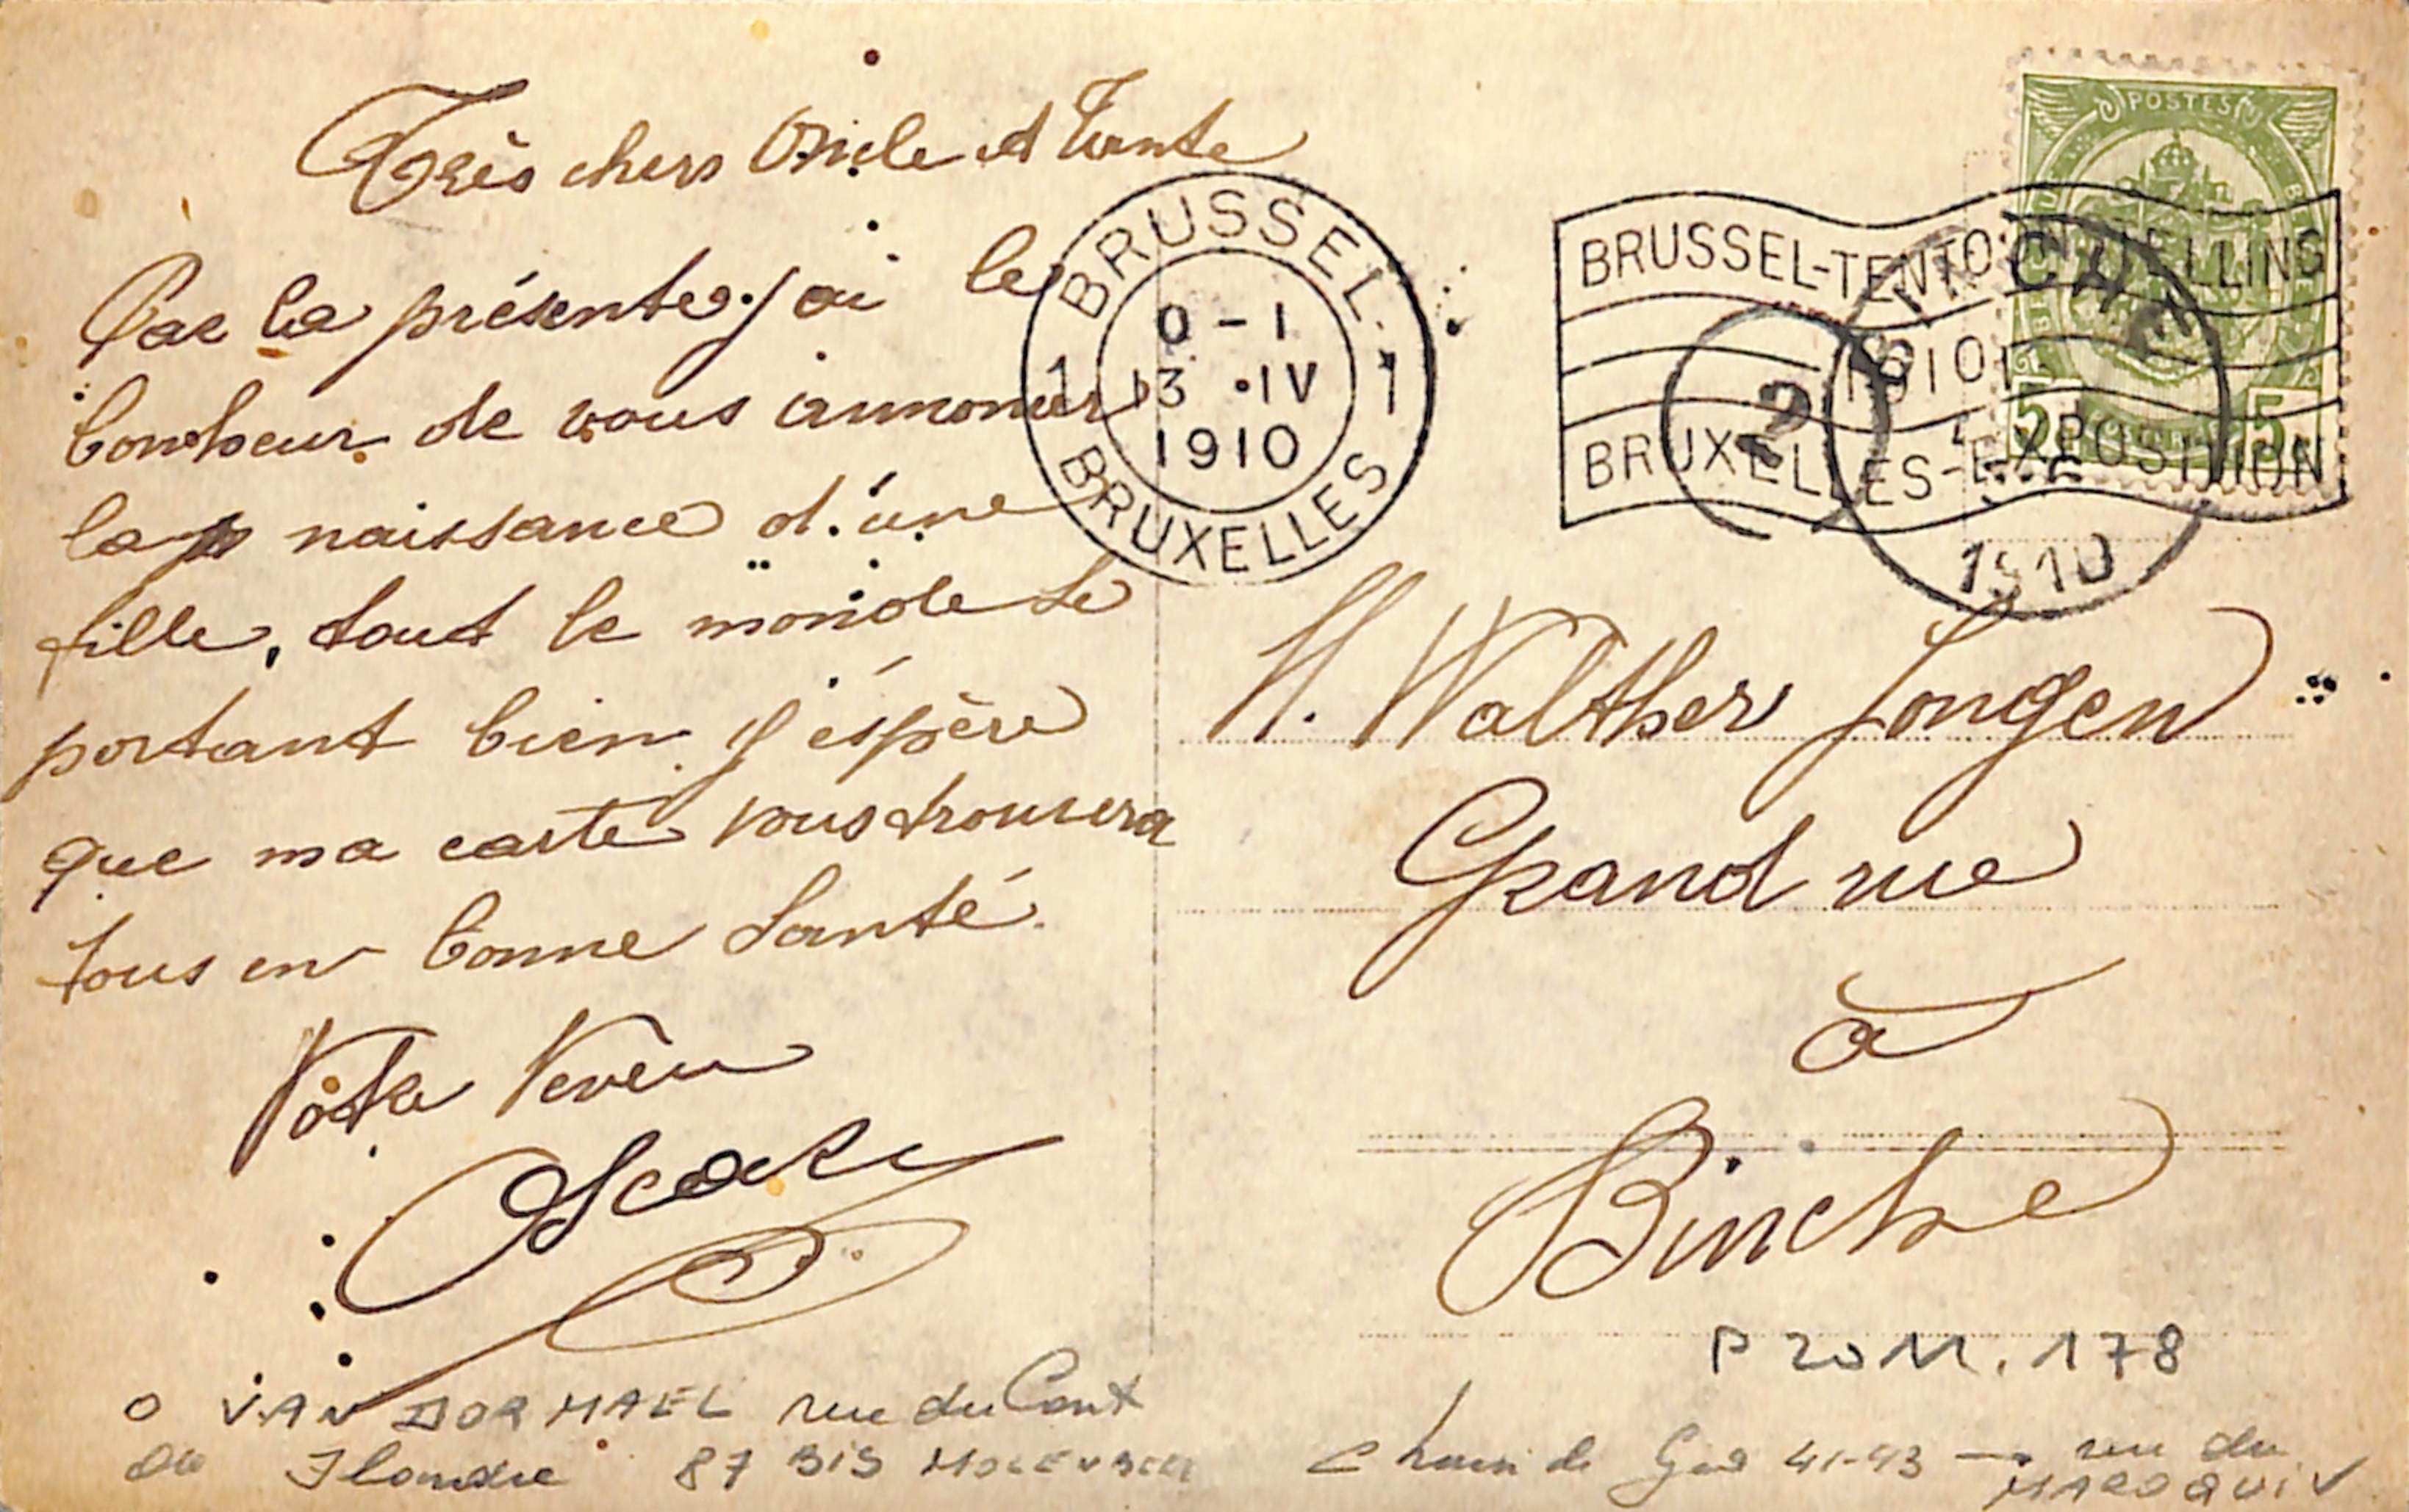 Très chers Oncle et Tante
Par la présente j'ai le
bonheur de vous annoncer
la naissance d'une
fille, tout le monde se
portant bien. J'éspère
que ma carte vous trouvera
tous en bonne Santé.
Votre Neveu
Oscar
BRUSSEL
1 0-1 1
13 ·IV
1910
BRUXELLES
POSTES
BRUSSEL-TENTOONSTELLING
1910
BRUXELLES-EXPOSITION
5 5
BINCHE
1910
2
M. Walther Jongen
Grand rue
à
Binche
P 20 M. 178
O VAN DORMAEL rue du Cont
de Flandre 87 BIS
41-43 → rue du